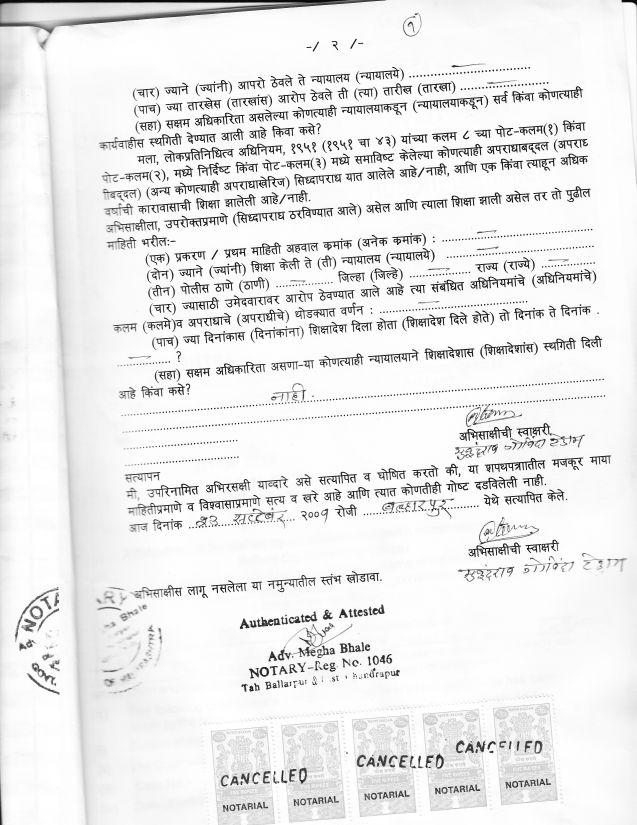 १
-/ २ /-
(चार) ज्याने (ज्यांनी) आपरो ठेवले ते न्यायालय (न्यायालये) ........................
(पाच) ज्या तारखेस (तारखांस) आरोप ठेवले ती (त्या) तारीख (तारखा) ........................
(सहा) सक्षम अधिकारिता असलेल्या कोणत्याही न्यायालयाकडून (न्यायालयाकडून) सर्व किंवा कोणत्याही
कार्यवाहीस स्थगिती देण्यात आली आहे किवा कसे?
मला, लोकप्रतिनिधित्व अधिनियम, १९५१ (१९५१ चा ४३) यांच्या कलम ८ च्या पोट-कलम(१) किंवा
पोट-कलम(२), मध्ये निर्दिष्ट किंवा पोट-कलम(३) मध्ये समाविष्ट केलेल्या कोणत्याही अपराधाबद्दल (अपराध
ीबद्दल) (अन्य कोणत्याही अपराधाखेरिज) सिध्दापराध यात आलेले आहे/नाही, आणि एक किंवा त्याहून अधिक
वर्षाची कारावासाची शिक्षा झालेली आहे/नाही.
अभिसाक्षीला, उपरोक्तप्रमाणे (सिध्दापराध ठरविण्यात आले) असेल आणि त्याला शिक्षा झाली असेल तर तो पुढील
माहिती भरील:-
(एक) प्रकरण / प्रथम माहिती अहवाल क्रमांक (अनेक क्रमांक) : ........................
(दोन) ज्याने (ज्यांनी) शिक्षा केली ते (ती) न्यायालय (न्यायालये) ........................
(तीन) पोलीस ठाणे (ठाणी) ............... जिल्हा (जिल्हे) ............... राज्य (राज्ये) ...............
(चार) ज्यासाठी उमेदवारावर आरोप ठेवण्यात आले आहे त्या संबंधित अधिनियमांचे (अधिनियमांचे)
कलम (कलमे)व अपराधाचे (अपराधीचे) थोडक्यात वर्णन : ........................
(पाच) ज्या दिनांकास (दिनांकांना) शिक्षादेश दिला होता (शिक्षादेश दिले होते) तो दिनांक ते दिनांक .
............... ?
(सहा) सक्षम अधिकारिता असणा-या कोणत्याही न्यायालयाने शिक्षादेशास (शिक्षादेशांस) स्थगिती दिली
आहे किंवा कसे?
नाही.
अभिसाक्षीची स्वाक्षरी
गोविंदा
सत्यापन
मी, उपरिनामित अभिरसक्षी याव्दारे असे सत्यापित व घोषित करतो की, या शपथपत्रातील मजकूर माया
माहितीप्रमाणे व विश्वासाप्रमाणे सत्य व खरे आहे आणि त्यात कोणतीही गोष्ट दडविलेली नाही.
आज दिनांक .... सप्टेंबर.... २००९ रोजी ....बल्हारपुर.......... येथे सत्यापित केले.
अभिसाक्षीची स्वाक्षरी
गोविंदा
अभिसाक्षीस लागू नसलेला या नमुन्यातील स्तंभ खोडावा.
NOTA
GOVT.
Bhale
Authenticated & Attested
Adv. Megha Bhale
NOTARY-Reg. No. 1046
Tah Ballarpur & Dist. Chandrapur
CANCELLED CANCELLED CANCELLED
NOTARIAL NOTARIAL NOTARIAL NOTARIAL NOTARIAL